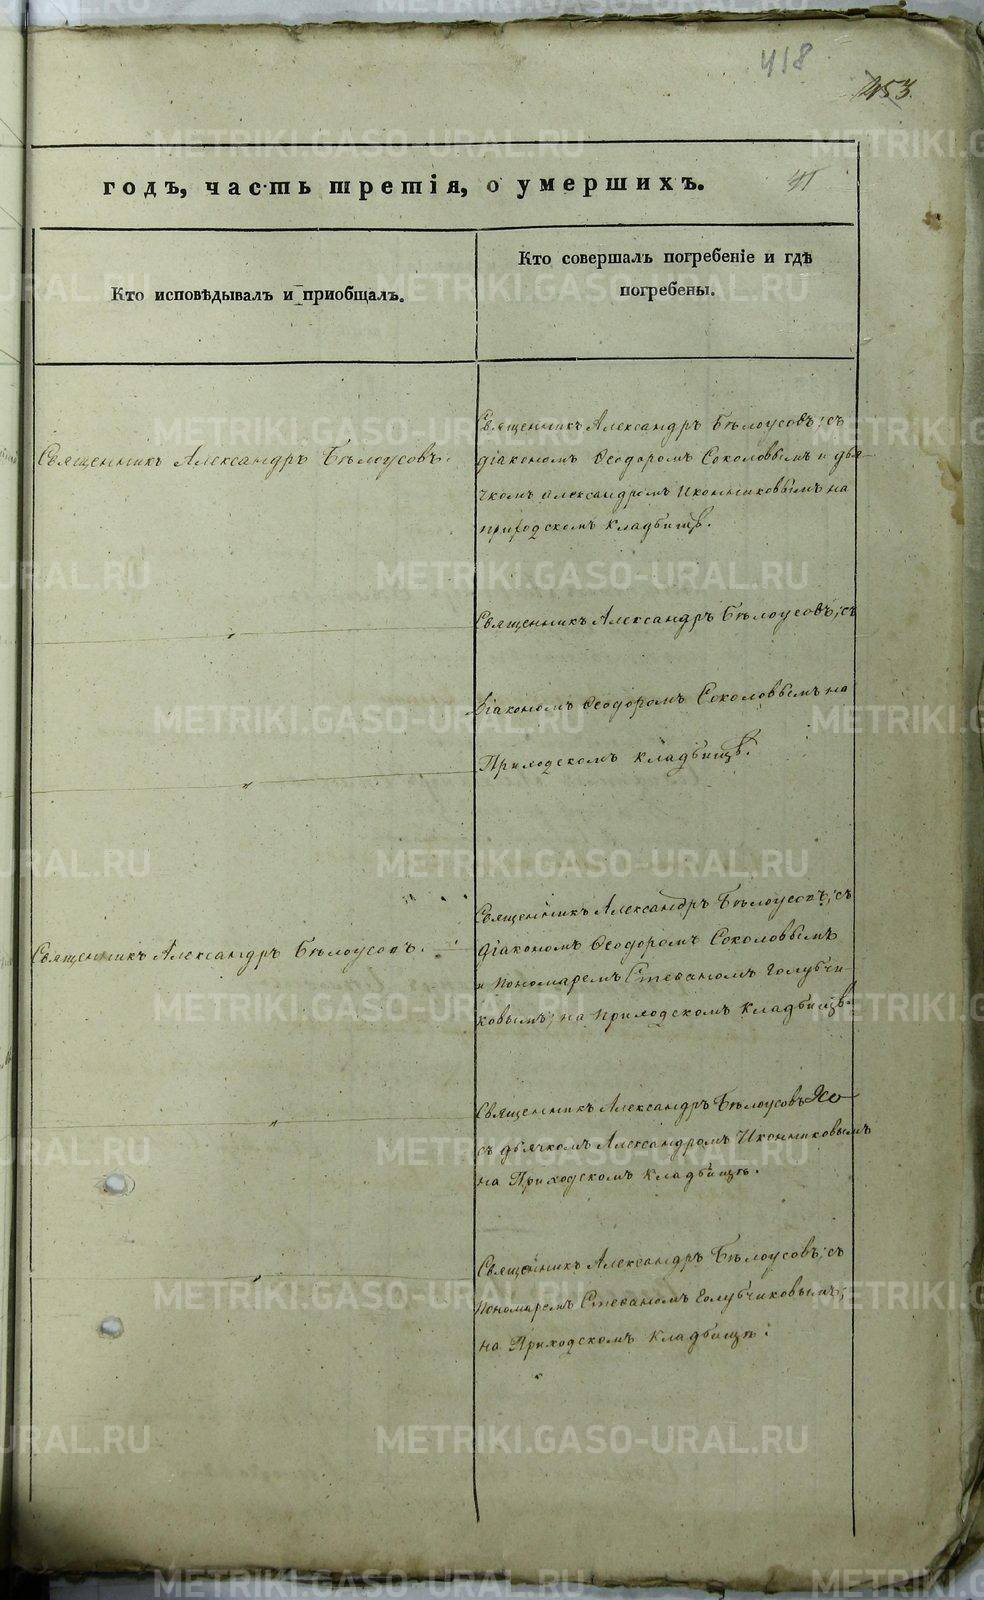 418
453.
годъ, часть третія, о умершихъ.
Кто исповѣдывалъ и приобщалъ.
Кто совершалъ погребеніе и гдѣ
погребены.
Священникъ Александръ Бѣлоусовъ.
Священникъ Александръ Бѣлоусовъ; съ
діакономъ Ѳеодоромъ Соколовымъ и дья-
чкомъ Александромъ Иконниковымъ на
приходскомъ кладбищѣ.
Священникъ Александръ Бѣлоусовъ; съ
Діакономъ Ѳеодоромъ Соколовымъ на
Приходскомъ кладбищѣ.
Священникъ Александръ Бѣлоусовъ.
Священникъ Александръ Бѣлоусовъ; съ
Діакономъ Ѳеодоромъ Соколовымъ
и пономаремъ Стефаномъ Голубчи-
ковымъ; на приходскомъ кладбищѣ
Священникъ Александръ Бѣлоусовъ
съ дьячкомъ Александромъ Иконниковымъ
на Приходскомъ кладбищѣ.
Священникъ Александръ Бѣлоусовъ; съ
пономаремъ Стефаномъ Голубчиковымъ;
на Приходскомъ кладбищѣ.
METRIKI.GASO-URAL.RU